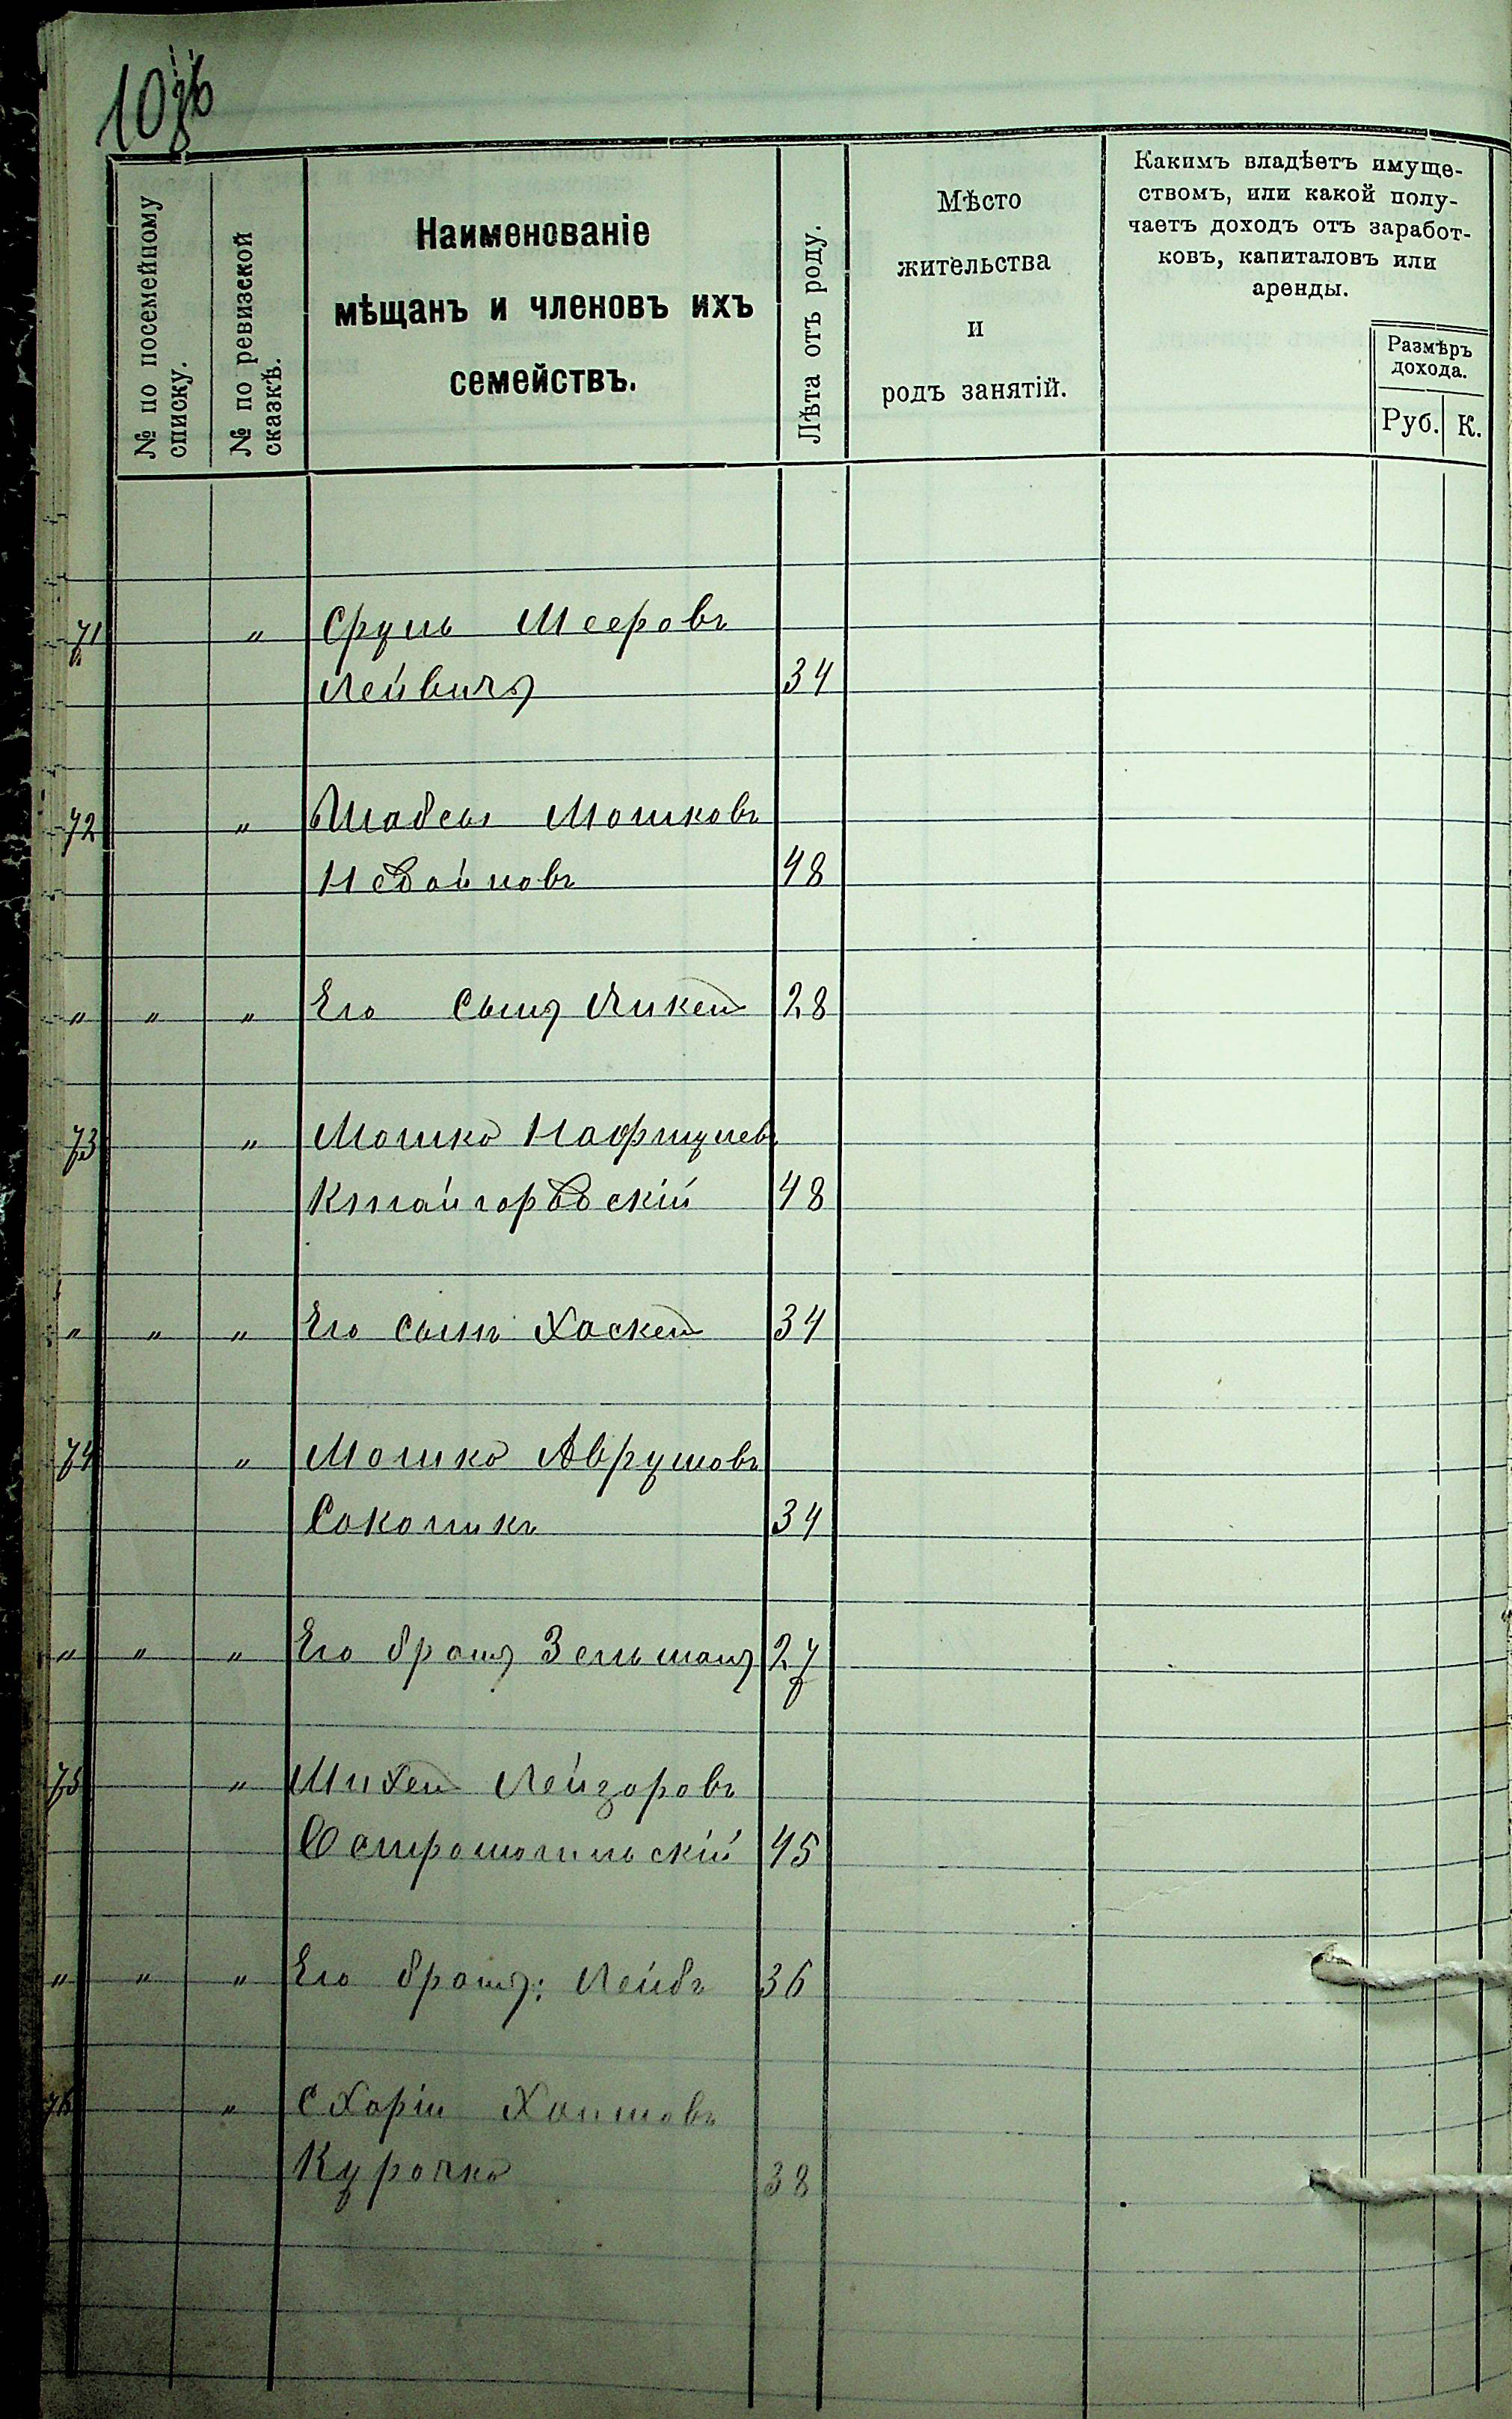 № по посемейному списку.
№ по ревизской сказкѣ.
Наименованіе
мѣщанъ и членовъ ихъ
семействъ.
Лѣта отъ роду.
Мѣсто
жительства
и
родъ занятій.
Какимъ владѣетъ имуще-
ствомъ, или какой полу-
чаетъ доходъ отъ заработ-
ковъ, капиталовъ или
аренды.
Размѣръ
дохода.
Руб. К.
71 " Сруль Мееровъ
Лейвичъ 34
72 " Шабсы Мошковъ
48
" " " Его Сынъ 28
73 " Мошко Нафтулев
Китайгородскій 48
" " " Его сынъ Хаскель 34
74 " Мошко Аврумовъ
Соколикъ 34
" " " Его братъ Зельманъ 27
75 " Михель Лейзоровъ
Остромогильскій 45
" " " Его братъ: Лейбъ 36
76 " Схарія Хаимовъ
Курочка 38